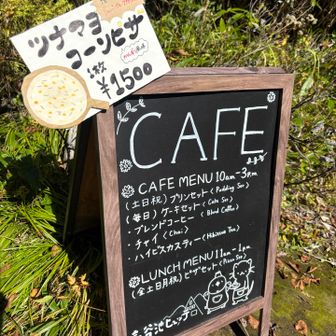 ツナマヨ
コーンピザ
1枚
¥1500
CAFE
CAFE MENU 10am-3pm
(土日祝) プリンセット (Pudding Set)
(毎日) ケーキセット (Cake Set)
・ブレンドコーヒー (Blend Coffee)
・チャイ (Chai)
・ハイビスカスティー (Hibiscus Tea)
LUNCH MENU 11am-1pm
(金土日月祝) ピザセット (Pizza Set)